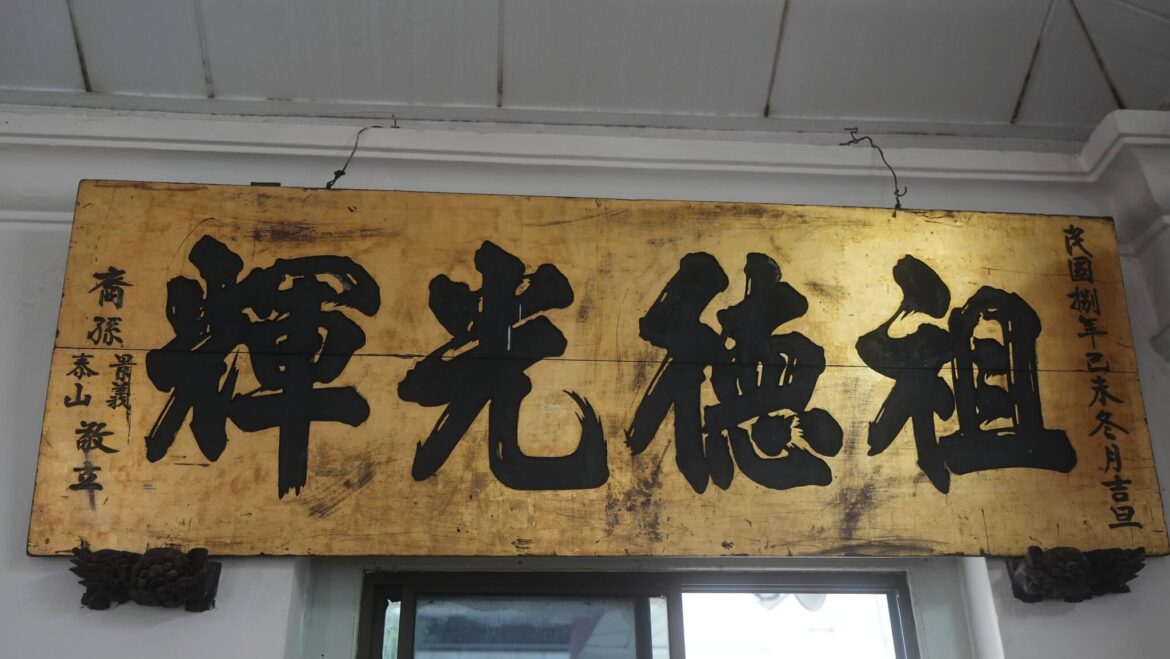 民國捌年己未冬月吉旦
祖德光輝
裔孫
義
泰山
敬立